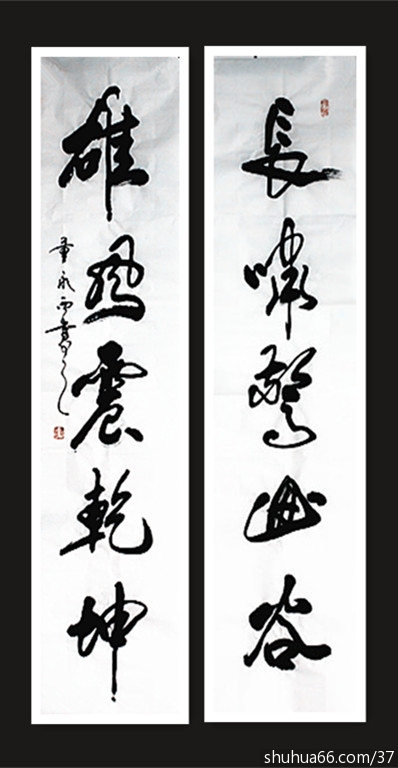 長嘯驚幽谷
雄風震乾坤
shuhua66.com/37